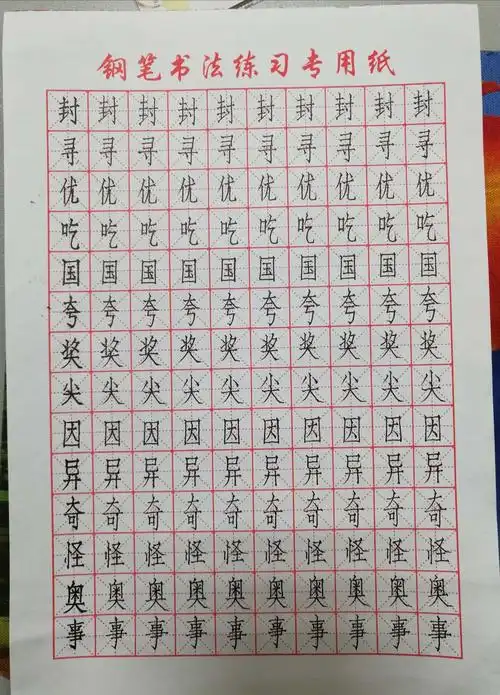 钢笔书法练习专用纸
封封封封封封封封封封
寻寻寻寻寻寻寻寻寻寻
优优优优优优优优优优
吃吃吃吃吃吃吃吃吃吃
国国国国国国国国国国
夸夸夸夸夸夸夸夸夸夸
奖奖奖奖奖奖奖奖奖奖
尖尖尖尖尖尖尖尖尖尖
因因因因因因因因因因
异异异异异异异异异异
奇奇奇奇奇奇奇奇奇奇
怪怪怪怪怪怪怪怪怪怪
奥奥奥奥奥奥奥奥奥奥
事事事事事事事事事事